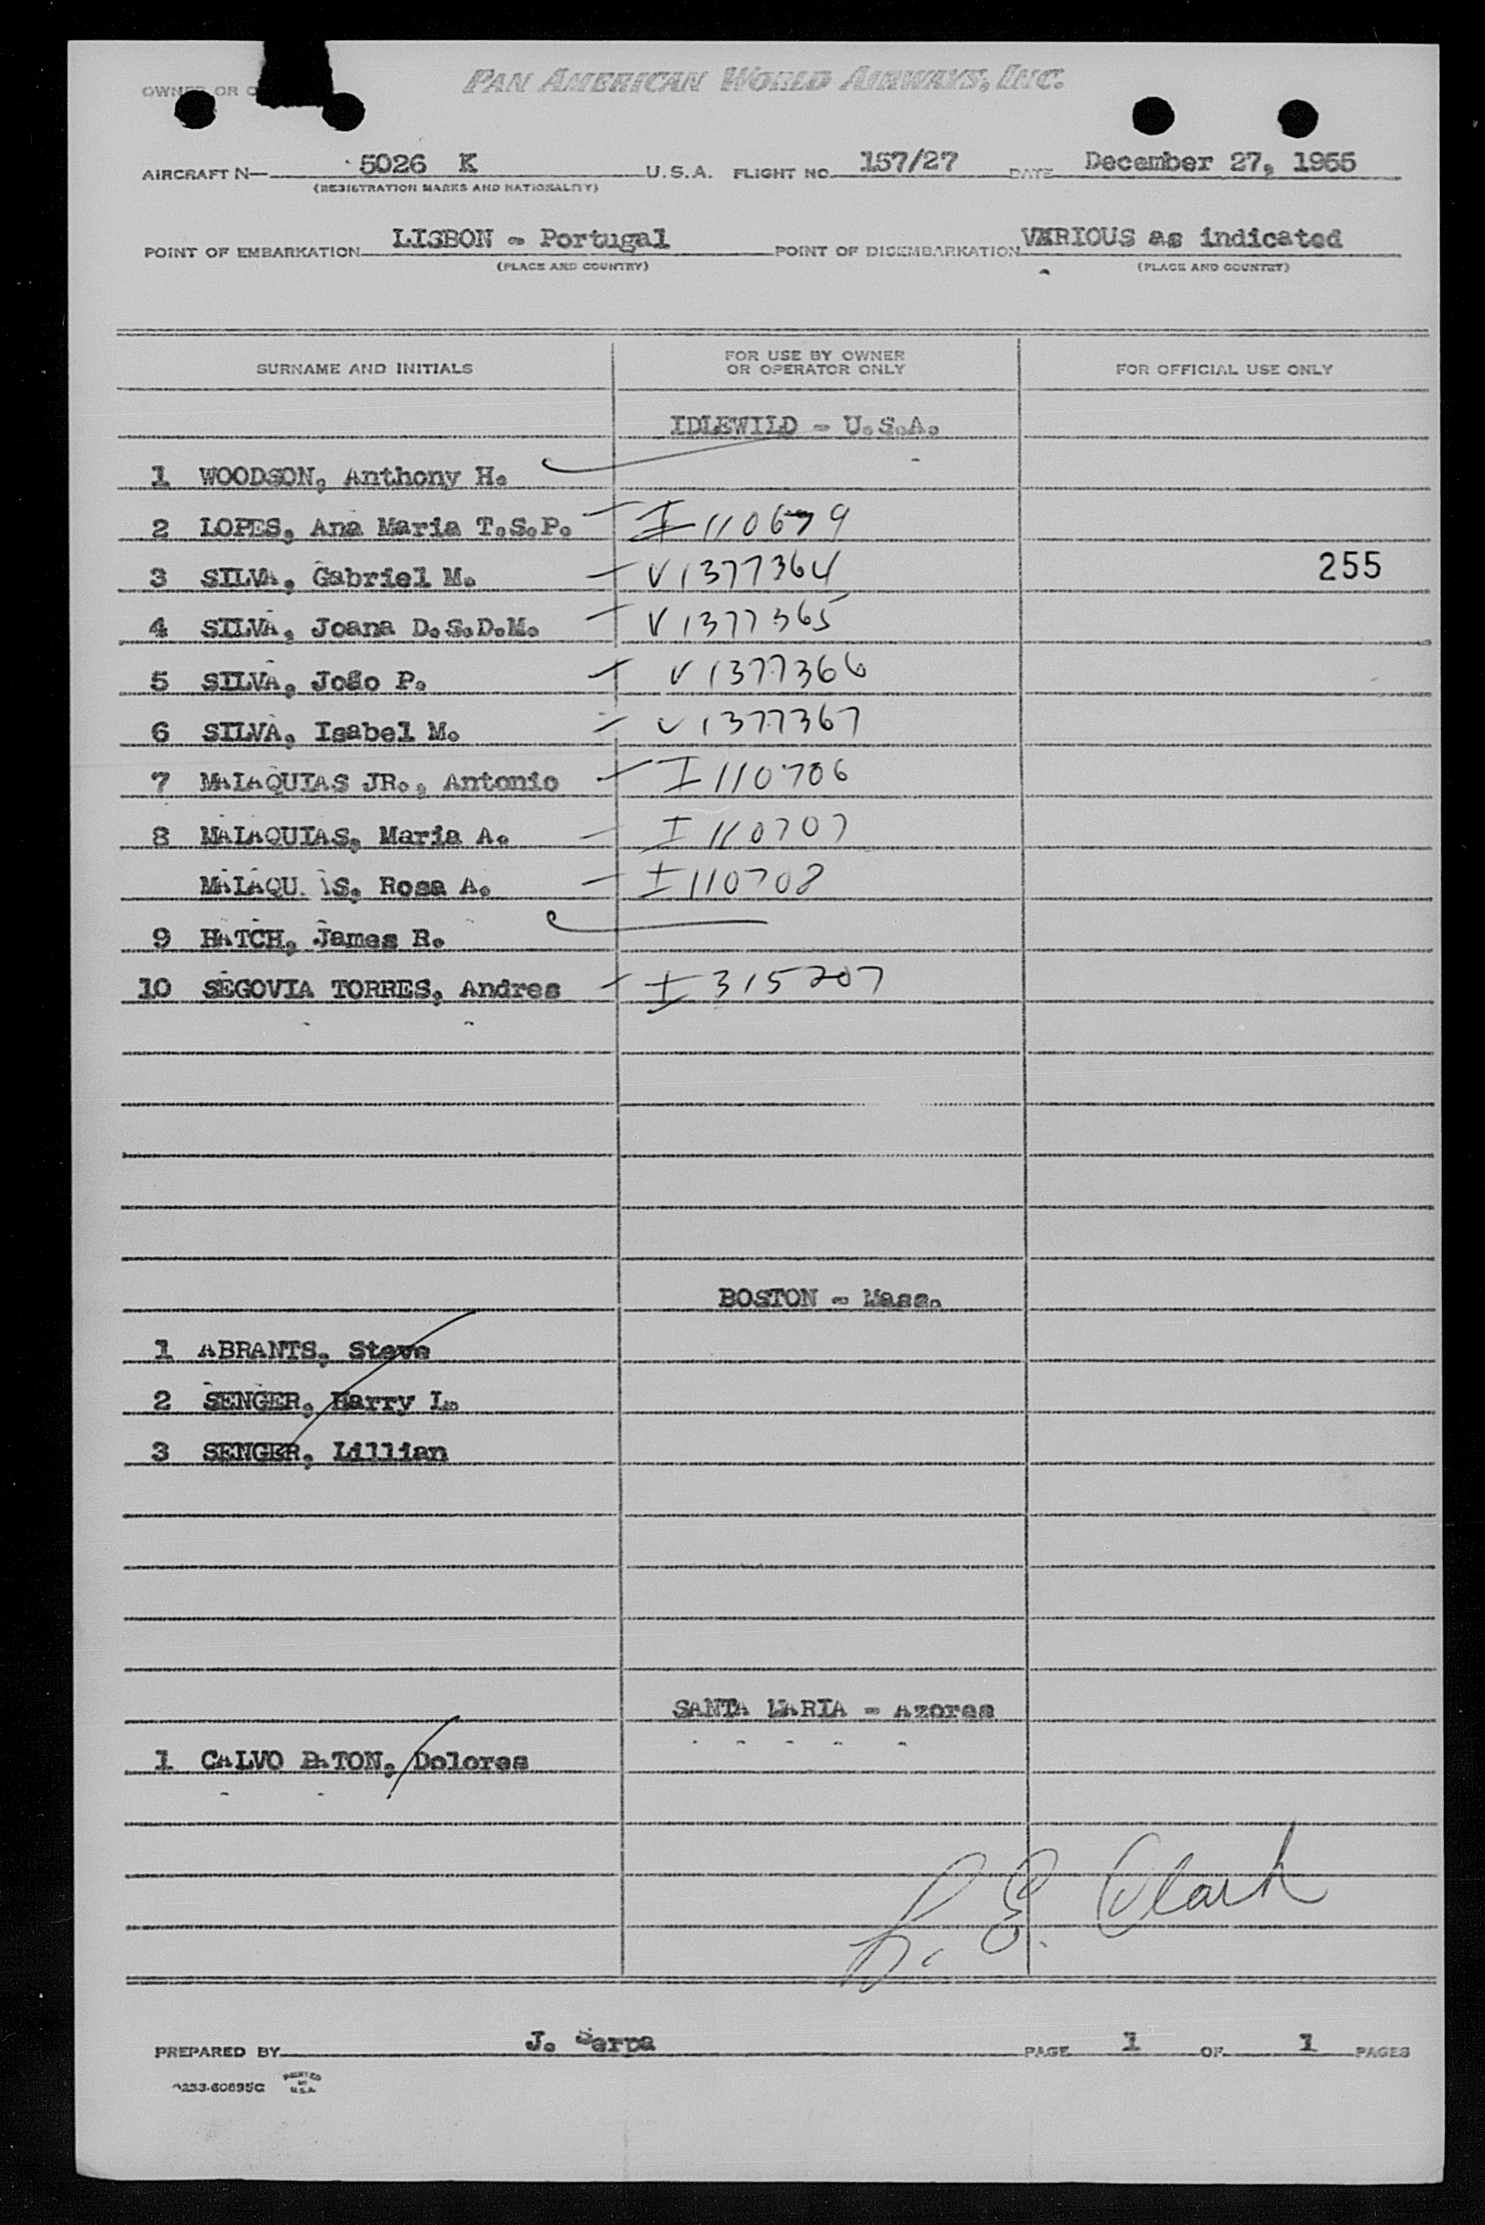 PAN AMERICAN WORLD AIRWAYS, INC.
OWNER OR
AIRCRAFT N— 5026 K U.S.A. FLIGHT NO. 157/27 DATE December 27, 1955
(REGISTRATION MARKS AND NATIONALITY)
POINT OF EMBARKATION LISBON - Portugal POINT OF DISEMBARKATION VARIOUS as indicated
(PLACE AND COUNTRY) (PLACE AND COUNTRY)
SURNAME AND INITIALS FOR USE BY OWNER OR OPERATOR ONLY FOR OFFICIAL USE ONLY
IDLEWILD - U.S.A.
1 WOODSON, Anthony H.
2 LOPES, Ana Maria T.S.P. I 110679
3 SILVA, Gabriel M. V1377364 255
4 SILVA, Joana D.S.D.M. V1377365
5 SILVA, João P. V1377366
6 SILVA, Isabel M. V1377367
7 MALAQUIAS JR., Antonio I 110706
8 MALAQUIAS, Maria A. I 110707
MALAQUIAS, Rosa A. I 110708
9 HATCH, James R.
10 SEGOVIA TORRES, Andres I 315207
BOSTON - Mass.
1 ABRANTS, Steve
2 SENGER, Harry L.
3 SENGER, Lillian
SANTA MARIA - Azores
1 CALVO PATON, Dolores
L. E. Clark
PREPARED BY J. Serpa PAGE 1 OF 1 PAGES
PRINTED IN U.S.A.